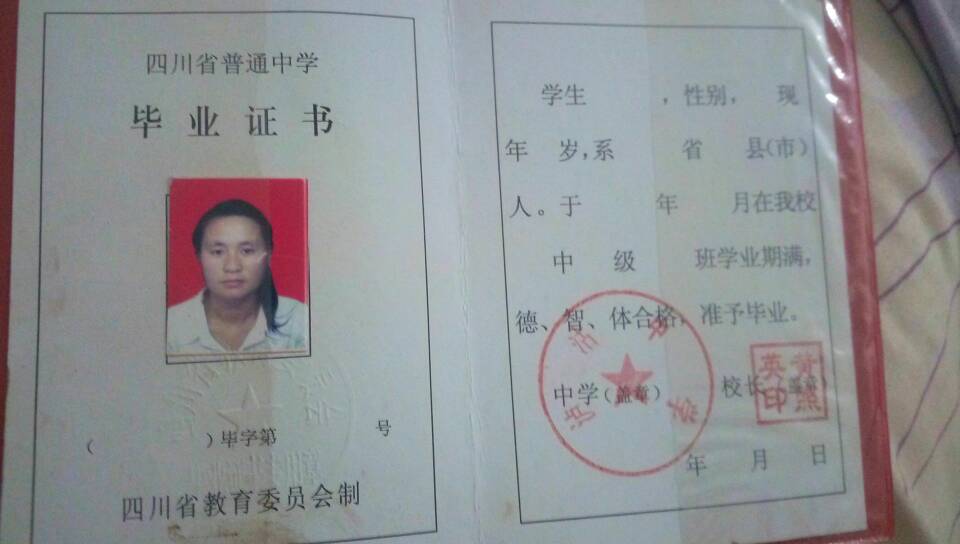 四川省普通中学
毕业证书
( )毕字第 号
四川省教育委员会制
学生 ,性别, 现
年 岁,系 省 县(市)
人。于 年 月在我校
中 级 班学业期满,
德、智、体合格,准予毕业。
中学(盖章) 校长(盖章)
年 月 日
泸沽中学
黄照英印